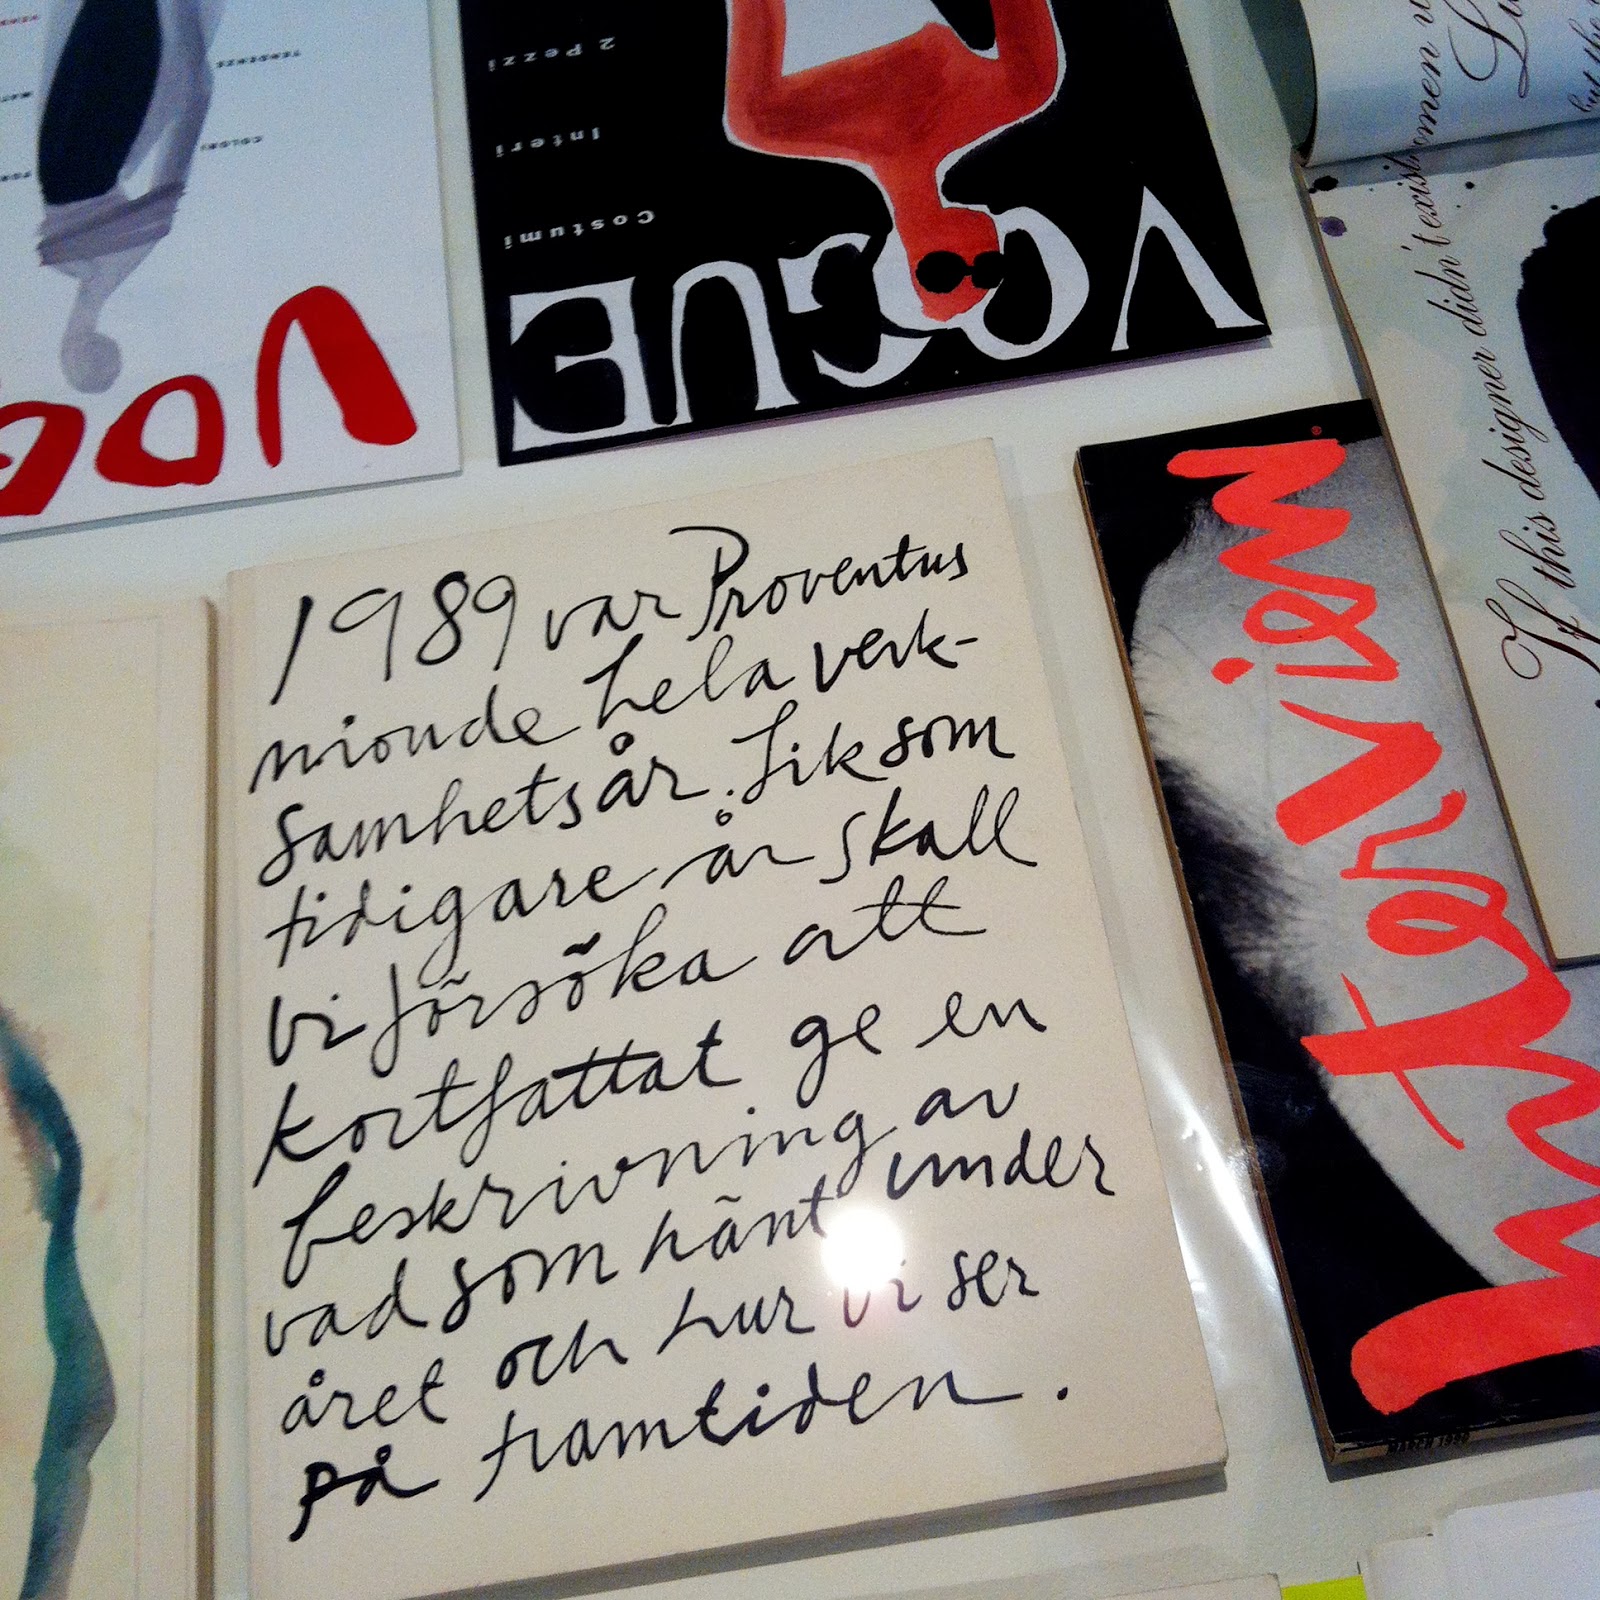 TENDENZE
COLORI
VOG
2 Pezzi
Interi
Costumi
VOGUE
1989 var Proventus
nionde hela verk-
samhetsår. Liksom
tidigare år skall
vi försöka att
kortfattat ge en
beskrivning av
vad som hänt under
året och hur vi ser
på framtiden.
Interview
MARCH 1990
If this designer didn't exist
women
but the